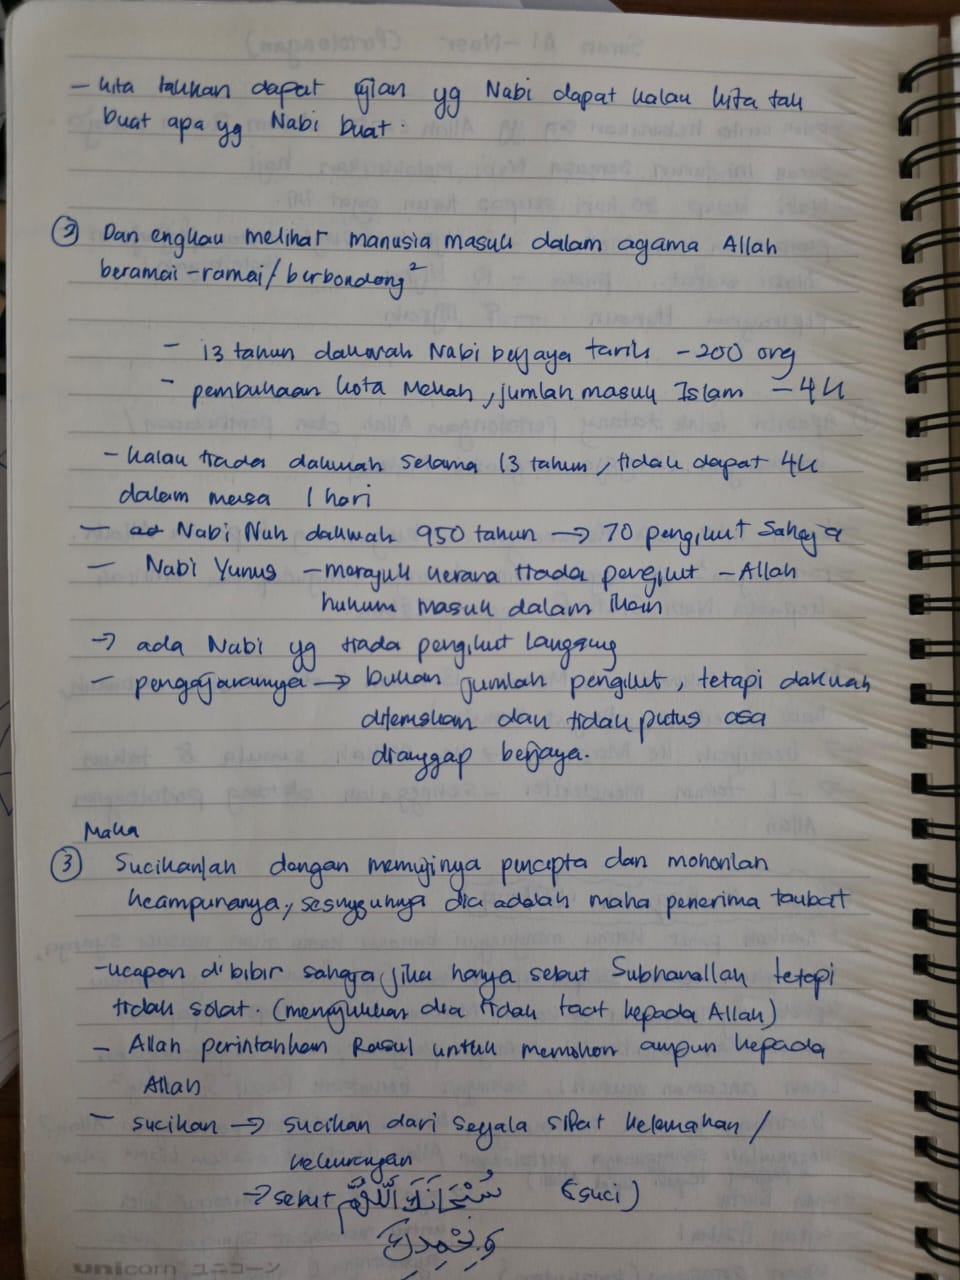 - kita takkan dapat ujian yg Nabi dapat kalau kita tak
buat apa yg Nabi buat.
② Dan engkau melihat manusia masuk dalam agama Allah
beramai-ramai/berbondong²
- 13 tahun dakwah Nabi berjaya tarik - 200 org
- pembukaan kota Mekah, jumlah masuk Islam - 4K
- kalau tiada dakwah selama 13 tahun, tidak dapat 4K
dalam masa 1 hari
- Nabi Nuh dakwah 950 tahun → 70 pengikut sahaja
- Nabi Yunus - merajuk kerana tiada pengikut - Allah
hukum masuk dalam ikan
→ ada Nabi yg tiada pengikut langsung
- pengajarannya → bukan jumlah pengikut, tetapi dakwah
diteruskan dan tidak putus asa
dianggap berjaya.
Maka
③ Sucikanlah dengan memujinya pencipta dan mohonlah
keampunanya, sesngguhnya dia adalah maha penerima taubat
- ucapan dibibir sahaja jika hanya sebut Subhanallah tetapi
tidak solat. (menunjukkan dia tidak taat kepada Allah)
- Allah perintahkan Rasul untuk memohon ampun kepada
Allah
- sucikan → sucikan dari segala sifat kelemahan /
kekurangan
→ sebut سُبْحَانَكَ اللّٰهُمَّ (suci)
وَبِحَمْدِكَ
unicorn ユニコーン